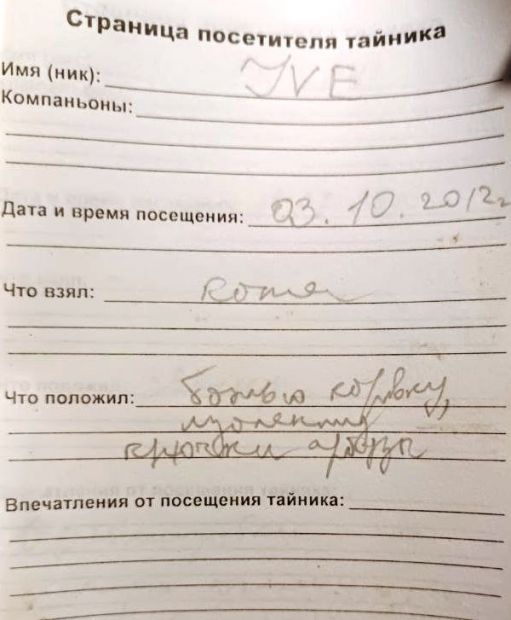 Страница посетителя тайника
Имя (ник): IVE
Компаньоны:
Дата и время посещения: 03.10.2012г
Что взял:
Что положил: божью коровку,
изоленту
крючки арбузы
Впечатления от посещения тайника: